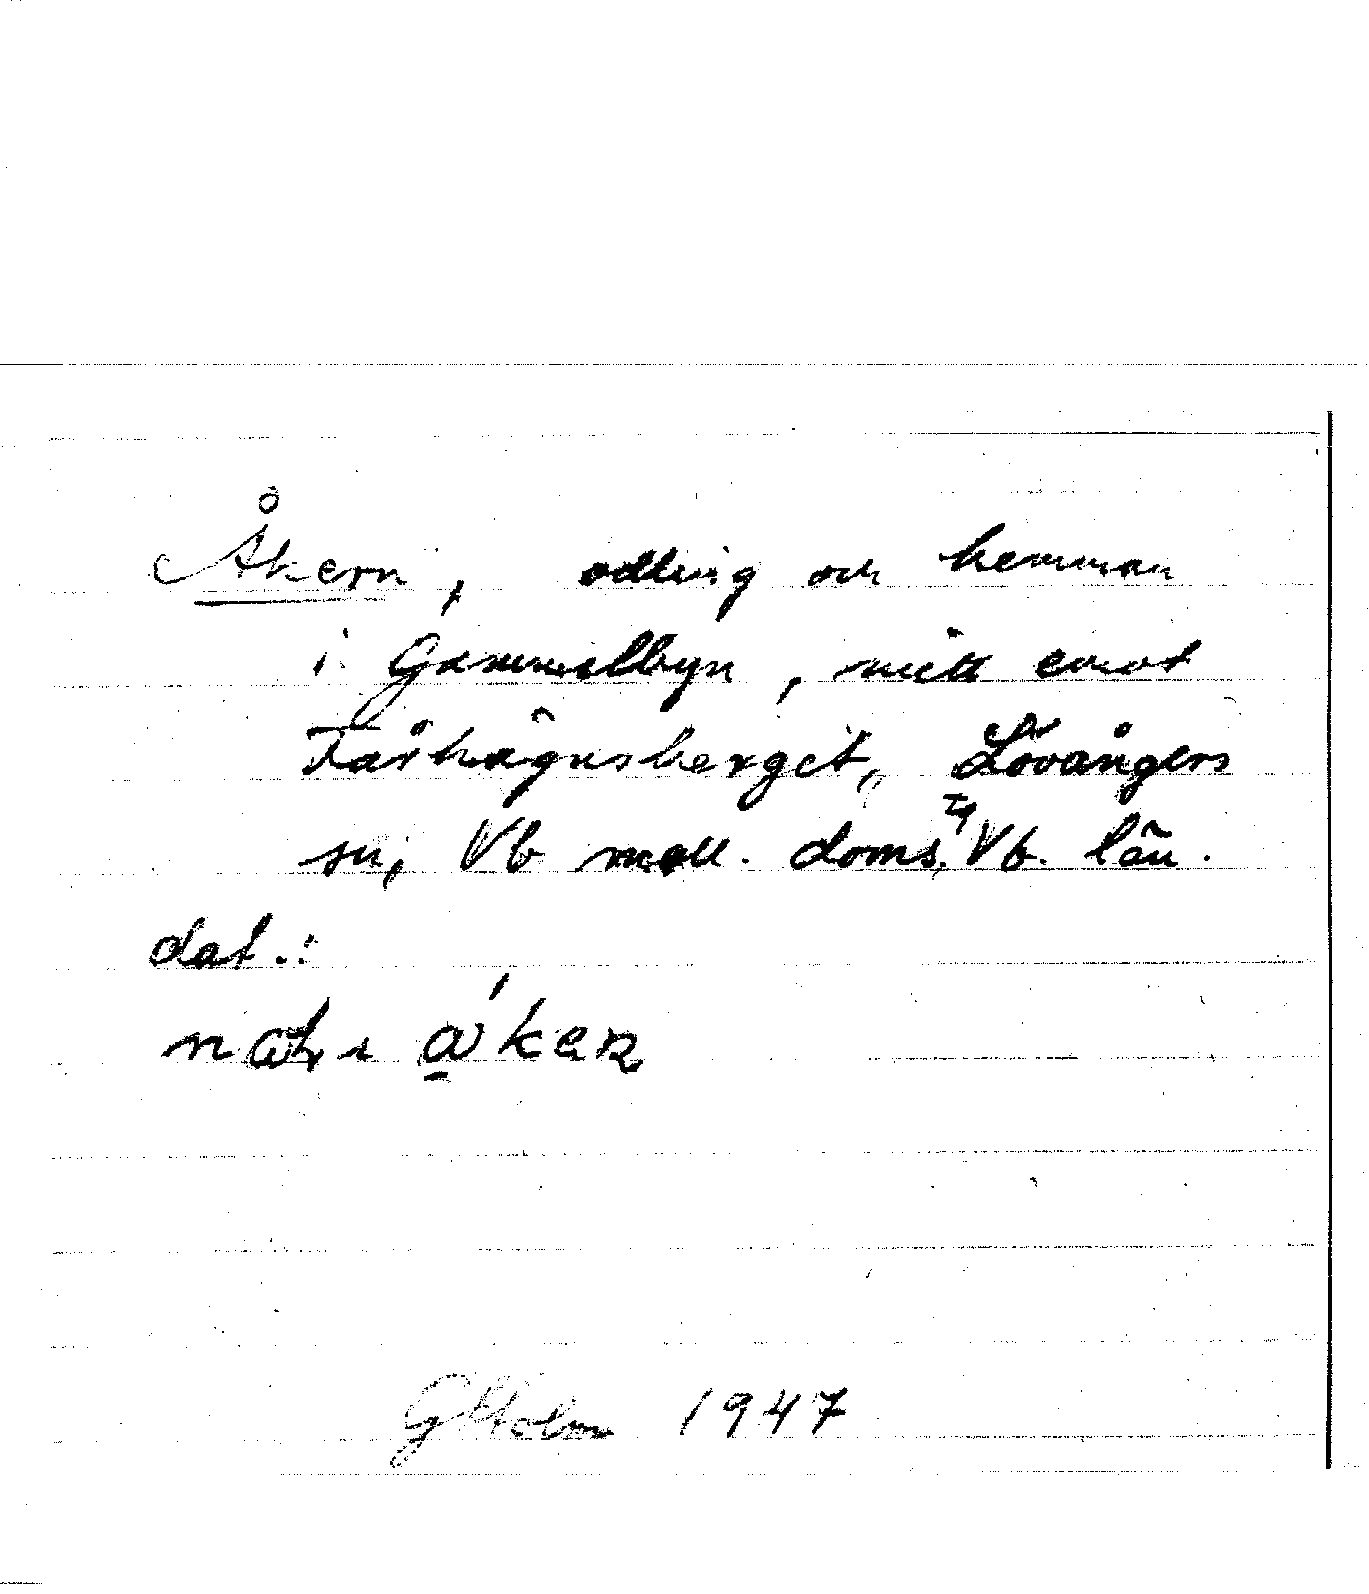 Åkern, odling och hemman
i Gammelbyn, mitt emot
Fårhägnsberget, Lövångers
sn, Vb mell. doms, Vb. län.
dat.:
åker
GHolm 1947